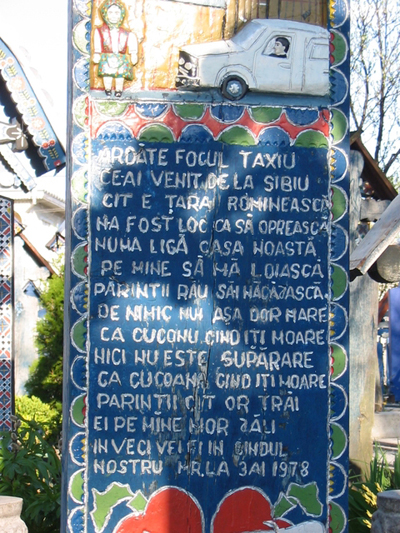 ARDATE FOCUL TAXIU
CE-AI VENIT DE LA SIBIU
CIT E ȚARA ROMINEASCĂ
NA FOST LOC CA SĂ OPREASCĂ
NUMA LIGĂ CASA NOASTĂ
PE MINE SĂ MĂ LOIASCĂ
PĂRINTII RĂU SĂI NĂCĂZASCĂ
DE NIMIC NU I AȘA DOR MARE
CA CUCONU CIND IȚI MOARE
NICI NU ESTE SUPĂRARE
CA CUCOANA CIND IȚI MOARE
PARINTII CIT OR TRĂI
EI PE MINE MOR ZĂLI
IN VECI VEI FI IN GINDUL
NOSTRU MR. LA 3 AI 1978